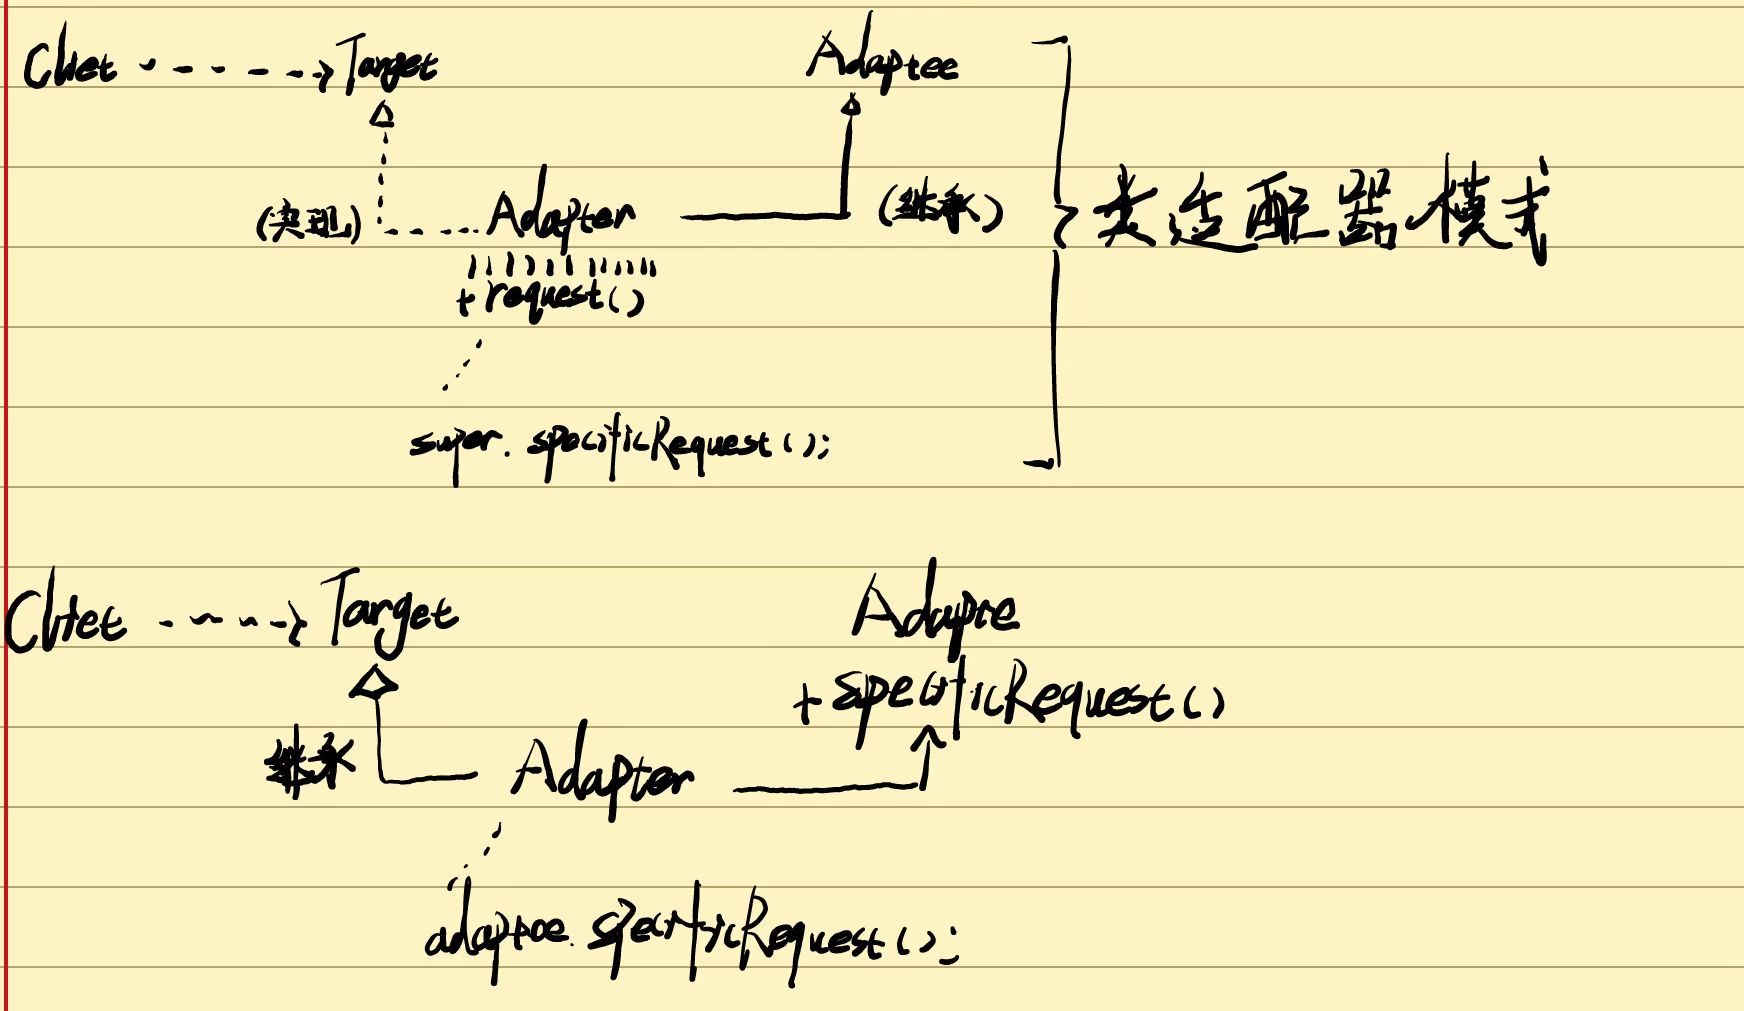 Cliet Target Adaptee
(实现) Adapter (继承) 类适配器模式
+ request()
super. specificRequest();
Cliet Target Adapte
+ specificRequest()
继承 Adapter
adaptee. specificRequest();